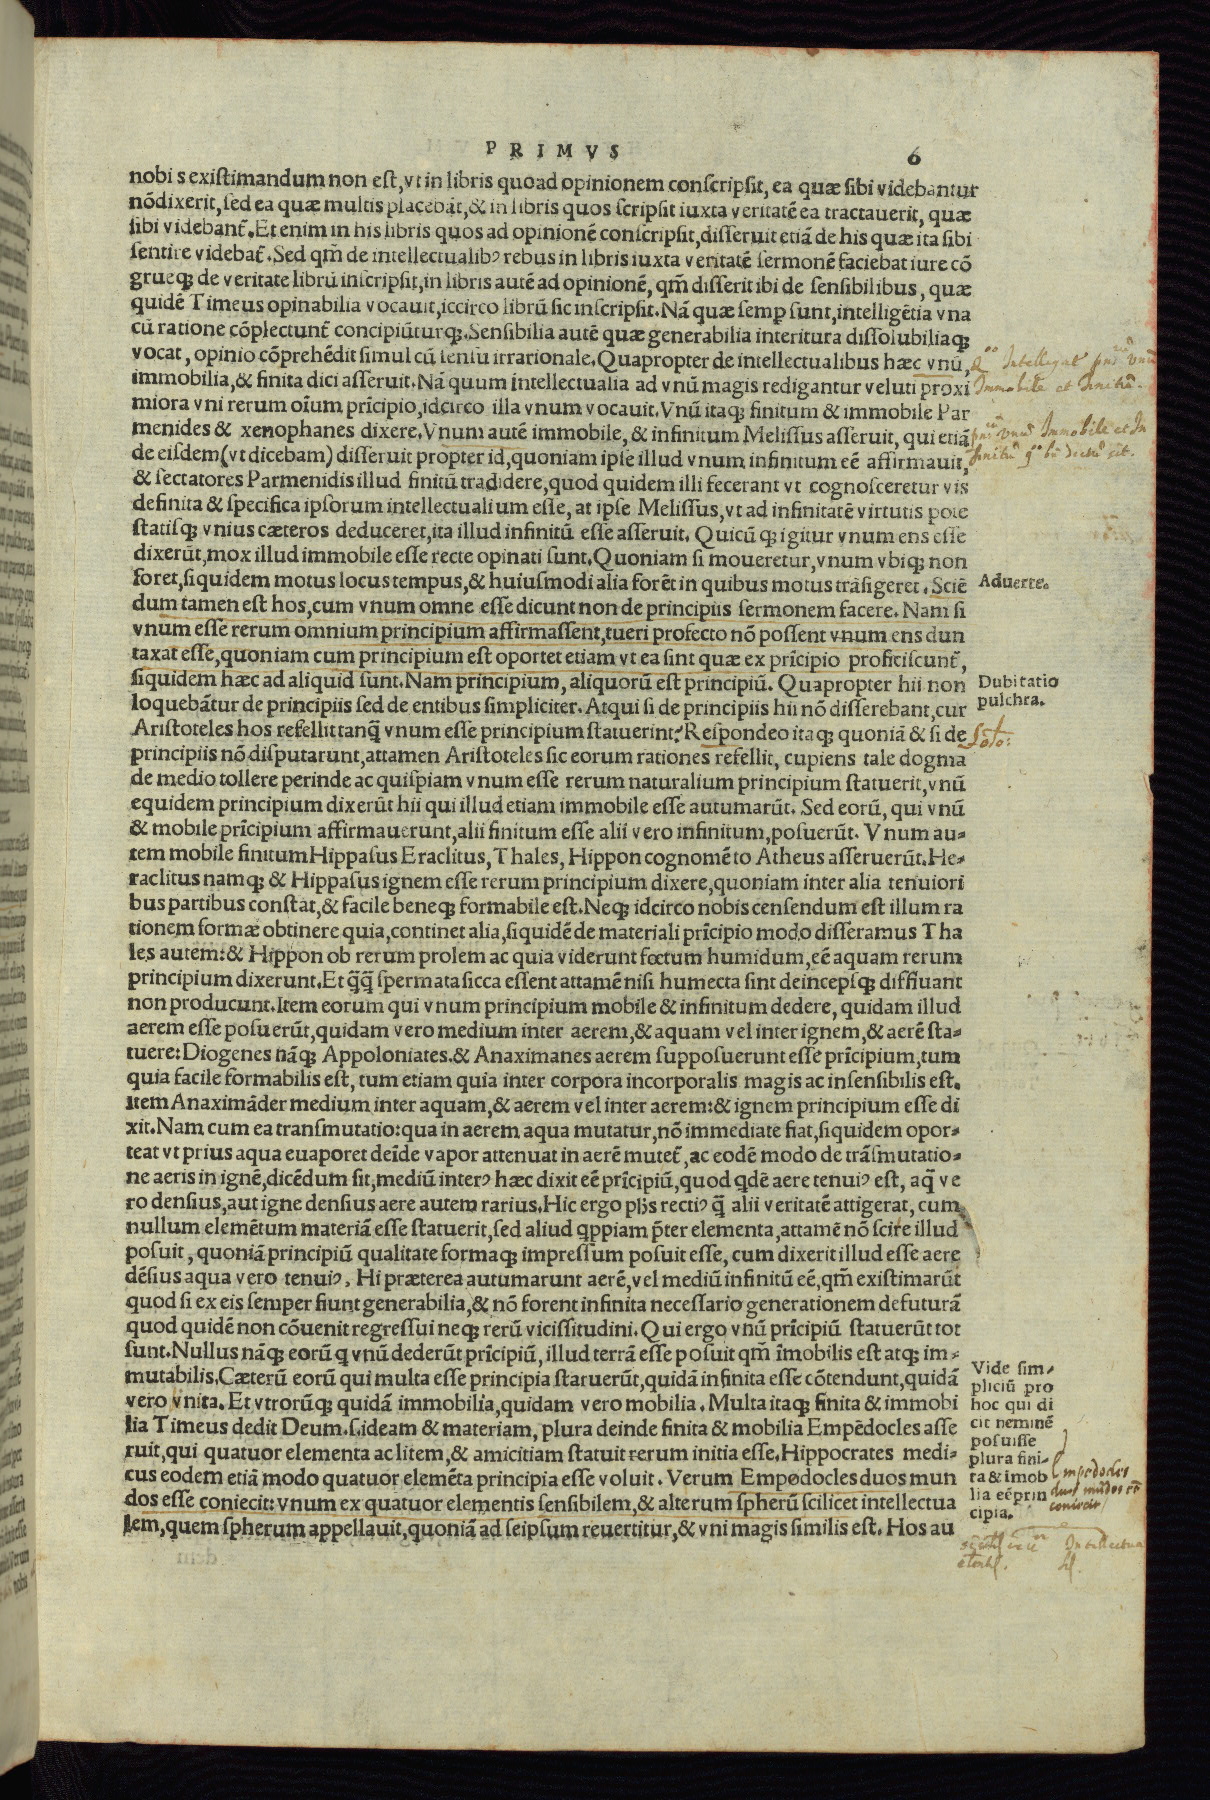 PRIMVS 6
nobi s existimandum non est, vt in libris quo ad opinionem conscripsit, ea quæ sibi videbantur
nōdixerit, sed ea quæ multis placebāt, & in libris quos scripsit iuxta veritatē ea tractauerit, quæ
sibi videbant̃. Et enim in his libris quos ad opinionē conscripsit, disseruit etiā de his quæ ita sibi
sentire videbat̃. Sed qm̃ de intellectualibꝰ rebus in libris iuxta veritatē sermonē faciebat iure cō
grueqꝫ de veritate librū inscripsit, in libris autē ad opinionē, qm̃ disserit ibi de sensibilibus, quæ
quidē Timeus opinabilia vocauit, iccirco librū sic inscripsit. Nā quæ semp sunt, intelligētia vna
cū ratione cōplectunt̃ concipiūturqꝫ. Sensibilia autē quæ generabilia interitura dissolubiliaqꝫ
vocat, opinio cōprehēdit simul cū sensu irrarionale. Quapropter de intellectualibus hæc vnū,
immobilia, & finita dici asseruit. Nā quum intellectualia ad vnū magis redigantur veluti proxi
miora vni rerum oīum prīcipio, idcirco illa vnum vocauit. Vnū itaqꝫ finitum & immobile Par
menides & xenophanes dixere. Vnum autē immobile, & infinitum Melissus asseruit, qui etiā
de eisdem (vt dicebam) disseruit propter id, quoniam ipse illud vnum infinitum eē affirmauit,
& sectatores Parmenidis illud finitū tradidere, quod quidem illi fecerant vt cognosceretur vis
definita & specifica ipsorum intellectualium esse, at ipse Melissus, vt ad infinitatē virtutis pote
statisqꝫ vnius cæteros deduceret, ita illud infinitū esse asseruit. Quicūqꝫ igitur vnum ens esse
dixerūt, mox illud immobile esse recte opinati sunt. Quoniam si moueretur, vnum vbiqꝫ non
foret, siquidem motus locus tempus, & huiusmodi alia forēt in quibus motus trāsigeret. Sciē
dum tamen est hos, cum vnum omne esse dicunt non de principiis sermonem facere. Nam si
vnum esse rerum omnium principium affirmassent, tueri profecto nō possent vnum ens dun
taxat esse, quoniam cum principium est oportet etiam vt ea sint quæ ex prīcipio proficiscunt̃,
siquidem hæc ad aliquid sunt. Nam principium, aliquorū est principiū. Quapropter hii non
loquebātur de principiis sed de entibus simpliciter. Atqui si de principiis hii nō disserebant, cur
Aristoteles hos refellit tanq̃ vnum esse principium statuerint? Respondeo itaqꝫ quoniā & si de
principiis nō disputarunt, attamen Aristoteles sic eorum rationes refellit, cupiens tale dogma
de medio tollere perinde ac quispiam vnum esse rerum naturalium principium statuerit, vnū
equidem principium dixerūt hii qui illud etiam immobile esse autumarūt. Sed eorū, qui vnū
& mobile prīcipium affirmauerunt, alii finitum esse alii vero infinitum, posuerūt. Vnum au-
tem mobile finitum Hippasus Eraclitus, Thales, Hippon cognomēto Atheus asseruerūt. He-
raclitus namqꝫ & Hippasus ignem esse rerum principium dixere, quoniam inter alia tenuiori
bus partibus constat, & facile beneqꝫ formabile est. Neqꝫ idcirco nobis censendum est illum ra
tionem formæ obtinere quia, continet alia, siquidē de materiali prīcipio modo disseramus Tha
les autem: & Hippon ob rerum prolem ac quia viderunt fœtum humidum, eē aquam rerum
principium dixerunt. Et q̃q̃ spermata sicca essent attamē nisi humecta sint deincepsqꝫ diffluant
non producunt. Item eorum qui vnum principium mobile & infinitum dedere, quidam illud
aerem esse posuerūt, quidam vero medium inter aerem, & aquam vel inter ignem, & aerē sta-
tuere: Diogenes nāqꝫ Appoloniates. & Anaximanes aerem supposuerunt esse prīcipium, tum
quia facile formabilis est, tum etiam quia inter corpora incorporalis magis ac insensibilis est.
item Anaximāder medium inter aquam, & aerem vel inter aerem: & ignem principium esse di
xit. Nam cum ea transmutatio: qua in aerem aqua mutatur, nō immediate fiat, siquidem opor-
teat vt prius aqua euaporet deīde vapor attenuat in aerē mutet̃, ac eodē modo de trāsmutatio-
ne aeris in ignē, dicēdum sit, mediū interꝰ hæc dixit eē prīcipiū, quod qdē aere tenuiꝰ est, aq̃ ve
ro densius, aut igne densius aere autem rarius. Hic ergo pl̃s rectiꝰ q̃ alii veritatē attigerat, cum
nullum elemētum materiā esse statuerit, sed aliud qppiam p̄ter elementa, attamē nō scite illud
posuit, quoniā principiū qualitate formaqꝫ impressum posuit esse, cum dixerit illud esse aere
dēsius aqua vero tenuiꝰ. Hi præterea autumarunt aerē, vel mediū infinitū eē, qm̃ existimarūt
quod si ex eis semper fiunt generabilia, & nō forent infinita necessario generationem defuturā
quod quidē non cōuenit regressui neqꝫ rerū vicissitudini. Qui ergo vnū prīcipiū statuerūt tot
sunt. Nullus nāqꝫ eorū q vnū dederūt prīcipiū, illud terrā esse posuit qm̃ īmobilis est atqꝫ im-
mutabilis. Cæterū eorū qui multa esse principia statuerūt, quidā infinita esse cōtendunt, quidā
vero vnita. Et vtrorūqꝫ quidā immobilia, quidam vero mobilia. Multa itaqꝫ finita & immobi
lia Timeus dedit Deum. s. ideam & materiam, plura deinde finita & mobilia Empēdocles asse
ruit, qui quatuor elementa ac litem, & amicitiam statuit rerum initia esse. Hippocrates medi-
cus eodem etiā modo quatuor elemēta principia esse voluit. Verum Empedocles duos mun
dos esse coniecit: vnum ex quatuor elementis sensibilem, & alterum spherū scilicet intellectua
lem, quem spherum appellauit, quoniā ad seipsum reuertitur, & vni magis similis est. Hos au
Intelligat vnū
Immobile et finitū.
vnū Immobile et In
finitū
Aduerte.
Dubitatio
pulchra.
Vide sim-
pliciū pro
hoc qui di
cit neminē
posuisse
plura fini-
ta & imob
lia eē prin
cipia.
Empedocles
duos mūdos
coniecit
Intellectua